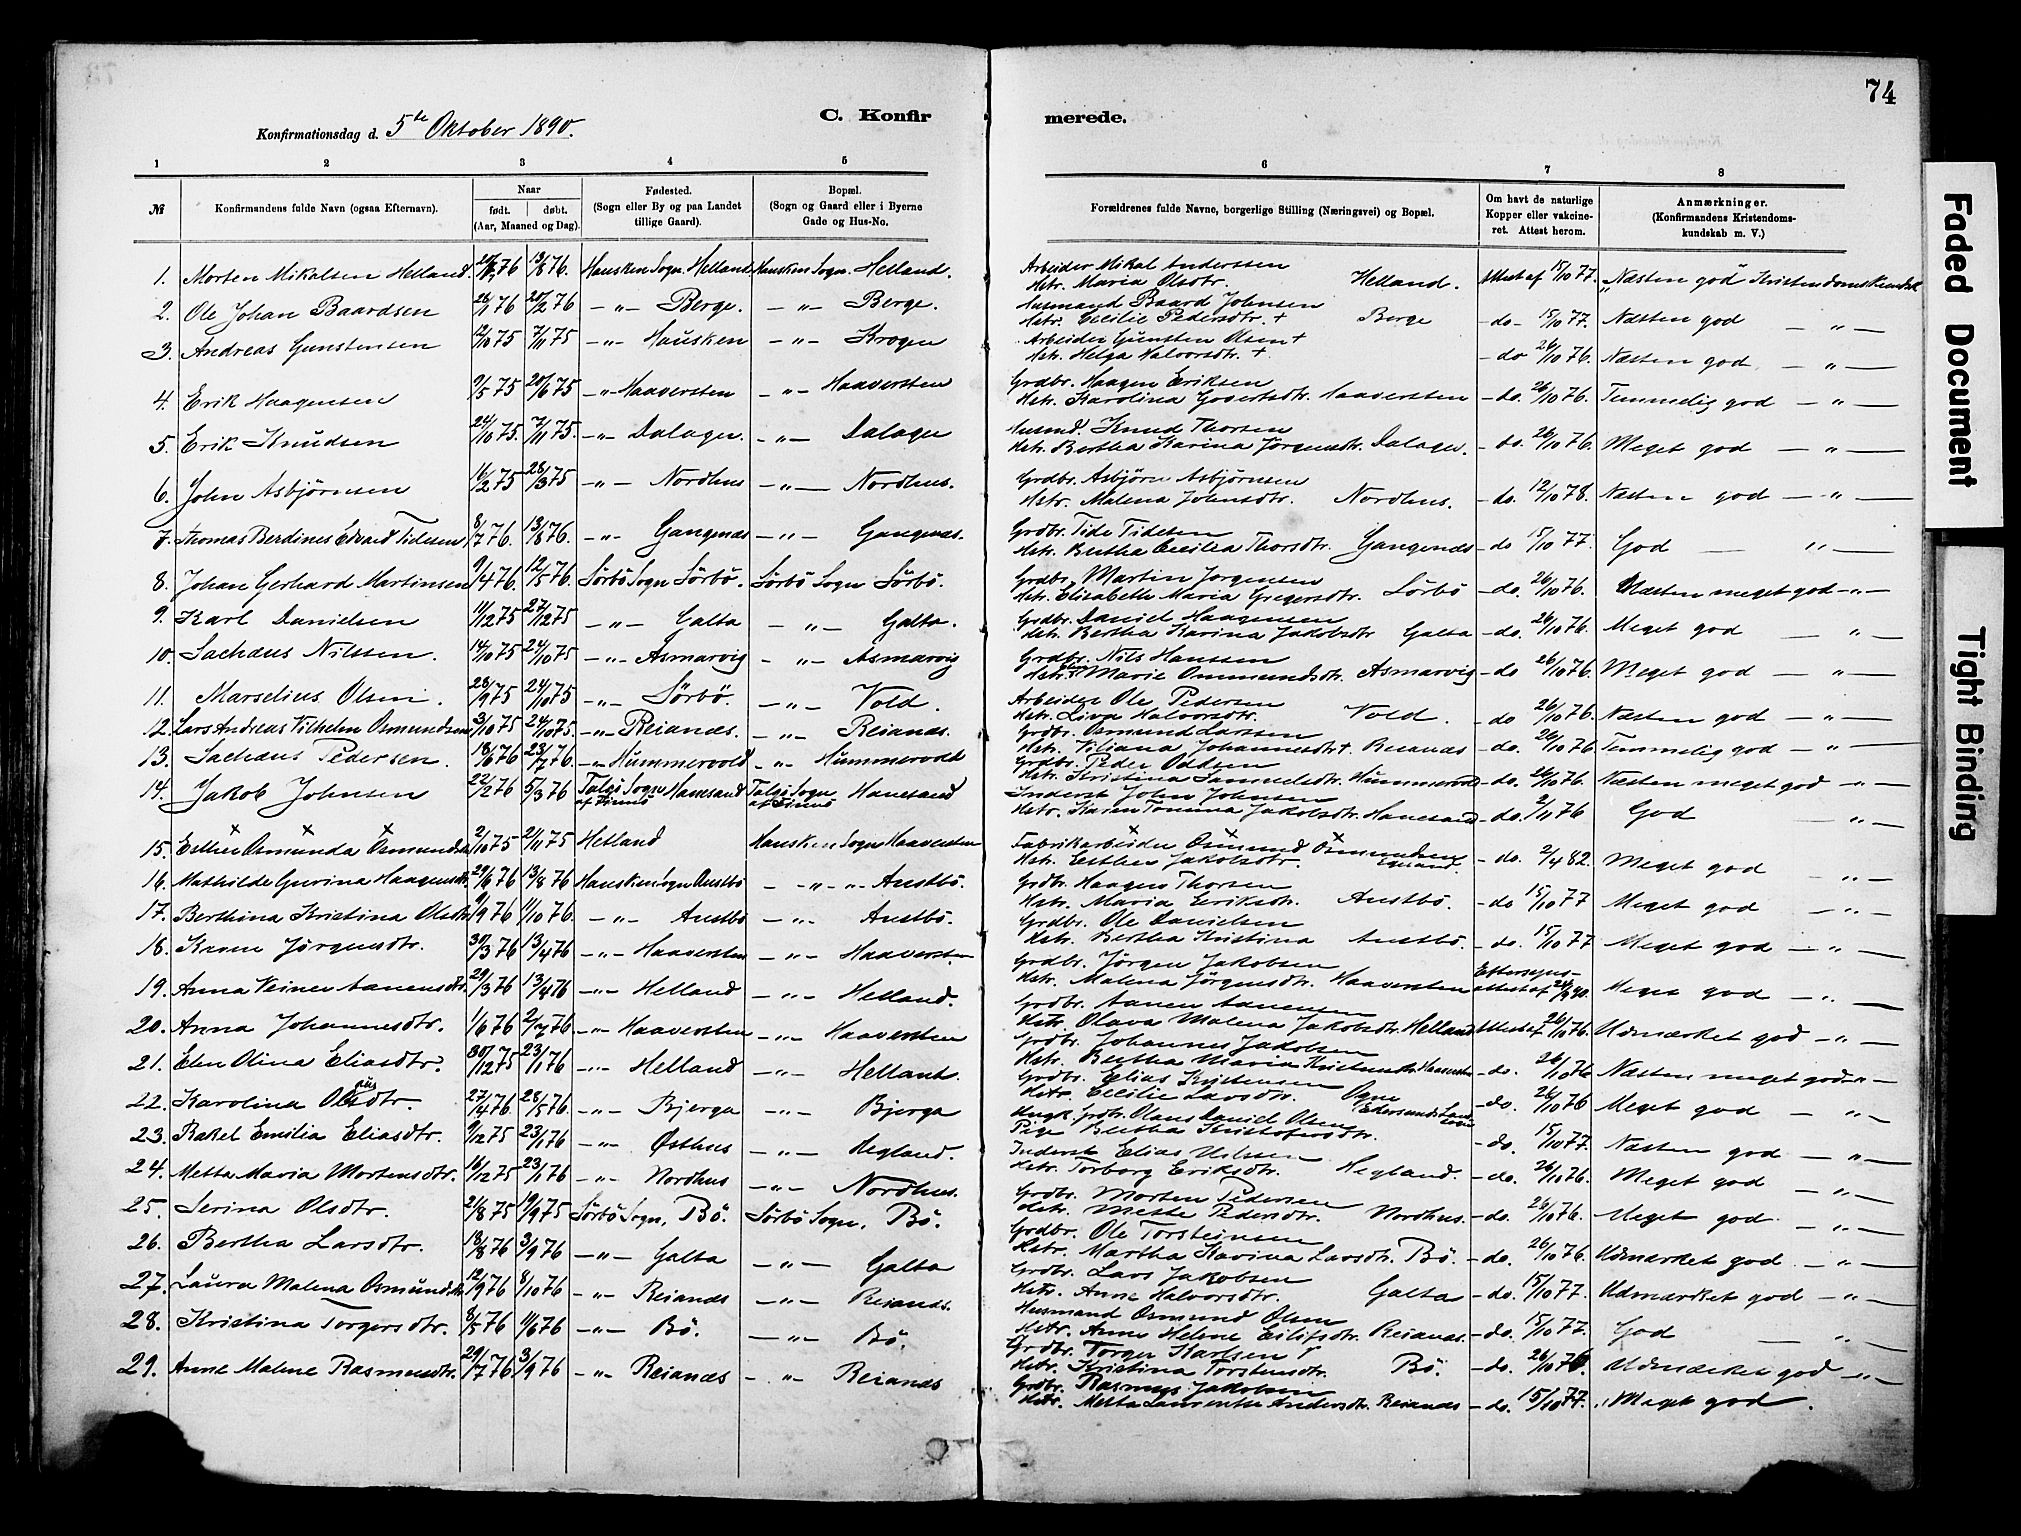 74
Konfirmationsdag d. 5te Oktober 1890.
C. Konfir
merede.
1 2 3 4 5 6 7 8
№ Konfirmandens fulde Navn (ogsaa Efternavn). Naar født. døbt. (Aar, Maaned og Dag). Fødested. (Sogn eller By og paa Landet tillige Gaard). Bopæl. (Sogn og Gaard eller i Byerne Gade og Hus-No. Forældrenes fulde Navne, borgerlige Stilling (Næringsvei) og Bopæl. Om havt de naturlige Kopper eller vakcineret. Attest herom. Anmærkninger. (Konfirmandens Kristendomskundskab m. V.)
1. Morten Mikalsen Helland. 76 13/8 76. Hausken Sogn. Helland Hausken Sogn. Helland. Arbeider Mikal Anderssen Hstr. Maria Olsdtr. Helland. Attest af 15/10 77. Næsten god Kristendomskundsk
2. Ole Johan Baardsen 26/1 76 20/2 76 -"- Berge. -"- Berge. Husmand Baard Johnsen Hstr. Cecilie Pedersdtr. + Berge -do- 15/10 77. Næsten god -"-
3. Andreas Gunstensen 12/10 75 7/11 75 -"- Hausken -"- Krogen Arbeider Gunsten Olsen + Hstr. Helga Halvorsdtr. + -do 26/10 76. Næsten god. -"-
4. Erik Haagensen 9/5 75 20/6 75 -"- Haaversten -"- Haaversten Grdbr. Haagen Eriksen Hstr. Karolina Govertsdtr. Haaversten -do. 26/10 76. Temmelig god -"-
5. Erik Knudsen 24/10 75. 7/11 75. -"- Dalager. -"- Dalager Husmd. Knud Thorsen Hstr. Bertha Karina Jørgensdtr. Dalager. -do. 26/10 76. Meget god -"-
6. John Asbjørnsen 16/2 75 28/3 75 -"- Nordhus -"- Nordhus. Grdbr. Asbjørn Asbjørnsen Hstr. Malena Johnsdtr. Nordhus. -do. 12/10 78. Næsten god -"-
7. Thomas Berdines Edvard Tidesen 8/7 76. 13/8 76. -"- Gangenæs -"- Gangenæs. Grdbr. Tide Tidesen Hstr. Bertha Cecilia Thorsdtr. Gangenæs -do 15/10 77. God -"-
8. Johan Gerhard Martinsen 9/4 76. 12/5 76. Sørbø Sogn Sørbø. Sørbø Sogn Sørbø. Grdbr. Martin Jørgensen Hstr. Elisabeth Maria Gregersdtr. Sørbø -do. 26/10 76. Næsten meget god -"-
9. Karl Danielsen 11/12 75 27/12 75 -"- Galta -"- Galta. Grdbr. Daniel Haagensen Hstr. Bertha Karina Jakobsdtr Galta -do. 26/10 76. Meget god -"-
10. Sachæus Nilssen. 14/10 75 24/10 75 -"- Asmarvig -"- Asmarvig Grdbr. Nils Hanssen Hstr. Marie Ommundsdtr. Asmarvig -do 26/10 76. Meget god -"-
11. Marselius Olsen. 28/9 75 24/10 75 -"- Sørbø. -"- Vold. Arbeider Ole Pedersen Hstr. Liva Halvorsdtr. Vold. -do 26/10 76. Næsten god -"-
12. Lars Andreas Vilhelm Osmundsen 3/10 75 24/10 75. -"- Reianæs. -"- Reianæs. Grdbr. Osmund Larssen Hstr. Viliana Johannesdtr + Reianæs -do. 26/10 76 Temmelig god -"-
13. Sachæus Pedersen. 18/6 76 23/7 76 -"- Hummervold -"- Hummervold Grdbr. Peder Oddsen Hstr. Kristina Samuelsdtr. Hummervold -do. 26/10 76. Næsten meget god -"-
14. Jakob Johnsen 22/2 76 5/3 76 Talgø Sogn af Finnø Hanesand Talgø Sogn af Finnø Hanesand Inderst John Johnsen Hstr. Karen Tomina Jakobsdtr. Hanesand -do. 2/11 76 God -"-
15. Esther Osmunda Osmundsdtr 2/10 75 2/11 75 Hetland Hausken Sogn Haaversten Fabrikarbeider Osmund Osmundsen Hstr. Esther Jakobsdtr. -do. 2/4 82. Meget god -"-
16. Mathilde Gurina Haagensdtr. 29/6 76 13/8 76 Hausken Sogn Austbø -"- Austbø. Grdbr. Haagen Thorsen Hstr. Maria Eriksdtr. Austbø. -do 15/10 77 Meget god -"-
17. Berthina Kristina Olsdtr 9/9 76 11/10 76. -"- Austbø -"- Austbø. Grdbr. Ole Danielsen Hstr. Bertha Kristina Austbø. -do. 15/10 77 Meget god -"-
18. Karen Jørgensdtr. 30/3 76 13/4 76 -"- Haaversten -"- Haaversten Grdbr. Jørgen Jakobsen Hstr. Malena Jørgensdtr. Haaversten Eftersyns-attest af 24/9 90. Meget god -"-
19. Anna Veinen Aanensdtr. 29/3 76 13/4 76 -"- Helland -"- Helland. Grdbr. Aanen Aanensen Hstr. Olava Malena Jakobsdtr. Helland Attest af 26/10 76. Udmærket god -"-
20. Anna Johannesdtr. 1/6 76 2/7 76 -"- Haaversten -"- Haaversten Grdbr. Johannes Jakobsen Hstr. Bertha Maria Kristensdtr. Haaversten -do. 26/10 76 Næsten meget god -"-
21. Elen Olina Eliasdtr. 30/12 75 23/1 76 -"- Helland -"- Helland. Grdbr. Elias Kristensen Hstr. Cecilie Larsdtr. -do. 26/10 76 Meget god -"-
22. Karolina Olsdtr. 27/4 76 28/5 76 -"- Bjerga -"- Bjerga Ungk. Grdbr. Olaus Daniel Olsen Pige Bertha Kristofersdtr. Ogne -do. 15/10 77. Næsten god -"-
23. Rakel Emilia Eliasdtr. 9/12 75 23/1 76 -"- Østhus -"- Hegland. Inderst Elias Nilssen Hstr. Torborg Eriksdtr. Hegland. -do. 26/10 76. Meget god -"-
24. Metta Maria Mortensdtr. 16/12 75 23/1 76 -"- Nordhus -"- Nordhus. Grdbr. Morten Pedersen Hstr. Mette Pedersdtr. Nordhus. -do. 26/10 76. Meget god. -"-
25. Serina Olsdtr. 21/8 75 19/9 75 Sørbø Sogn, Bø. Sørbø Sogn, Bø. Grdbr. Ole Torsteinsen Hstr. Martha Karina Larsdtr. Bø. -do. 26/10 76. Udmærket god. -"-
26. Bertha Larsdtr. 18/8 76 3/9 76 -"- Galta -"- Galta Grdbr. Lars Jakobsen Hstr. Anne Halvorsdtr. Galta -do. 15/10 77. Udmærket god -"-
27. Laura Malena Osmundsdtr 12/9 76 8/10 76 -"- Reianæs -"- Reianæs. Husmand Osmund Olsen Hstr. Anne Helene Eilifsdtr. Reianæs. -do. 15/10 77. God -"-
28. Kristina Torgersdtr. 8/5 76 11/6 76 -"- Bø. -"- Bø. Grdbr. Torger Karlsen Hstr. Kristina Torstensdtr. Bø. -do. 26/10 76 Udmærket god -"-
29. Anne Malene Rasmusdtr. 29/7 76 3/9 76 -"- Reianæs -"- Reianæs Grdbr. Rasmus Jakobsen Hstr. Metta Laurentse Andersdtr. Reianæs -do. 15/10 77. "Meget god.
Faded Document
Tight Binding